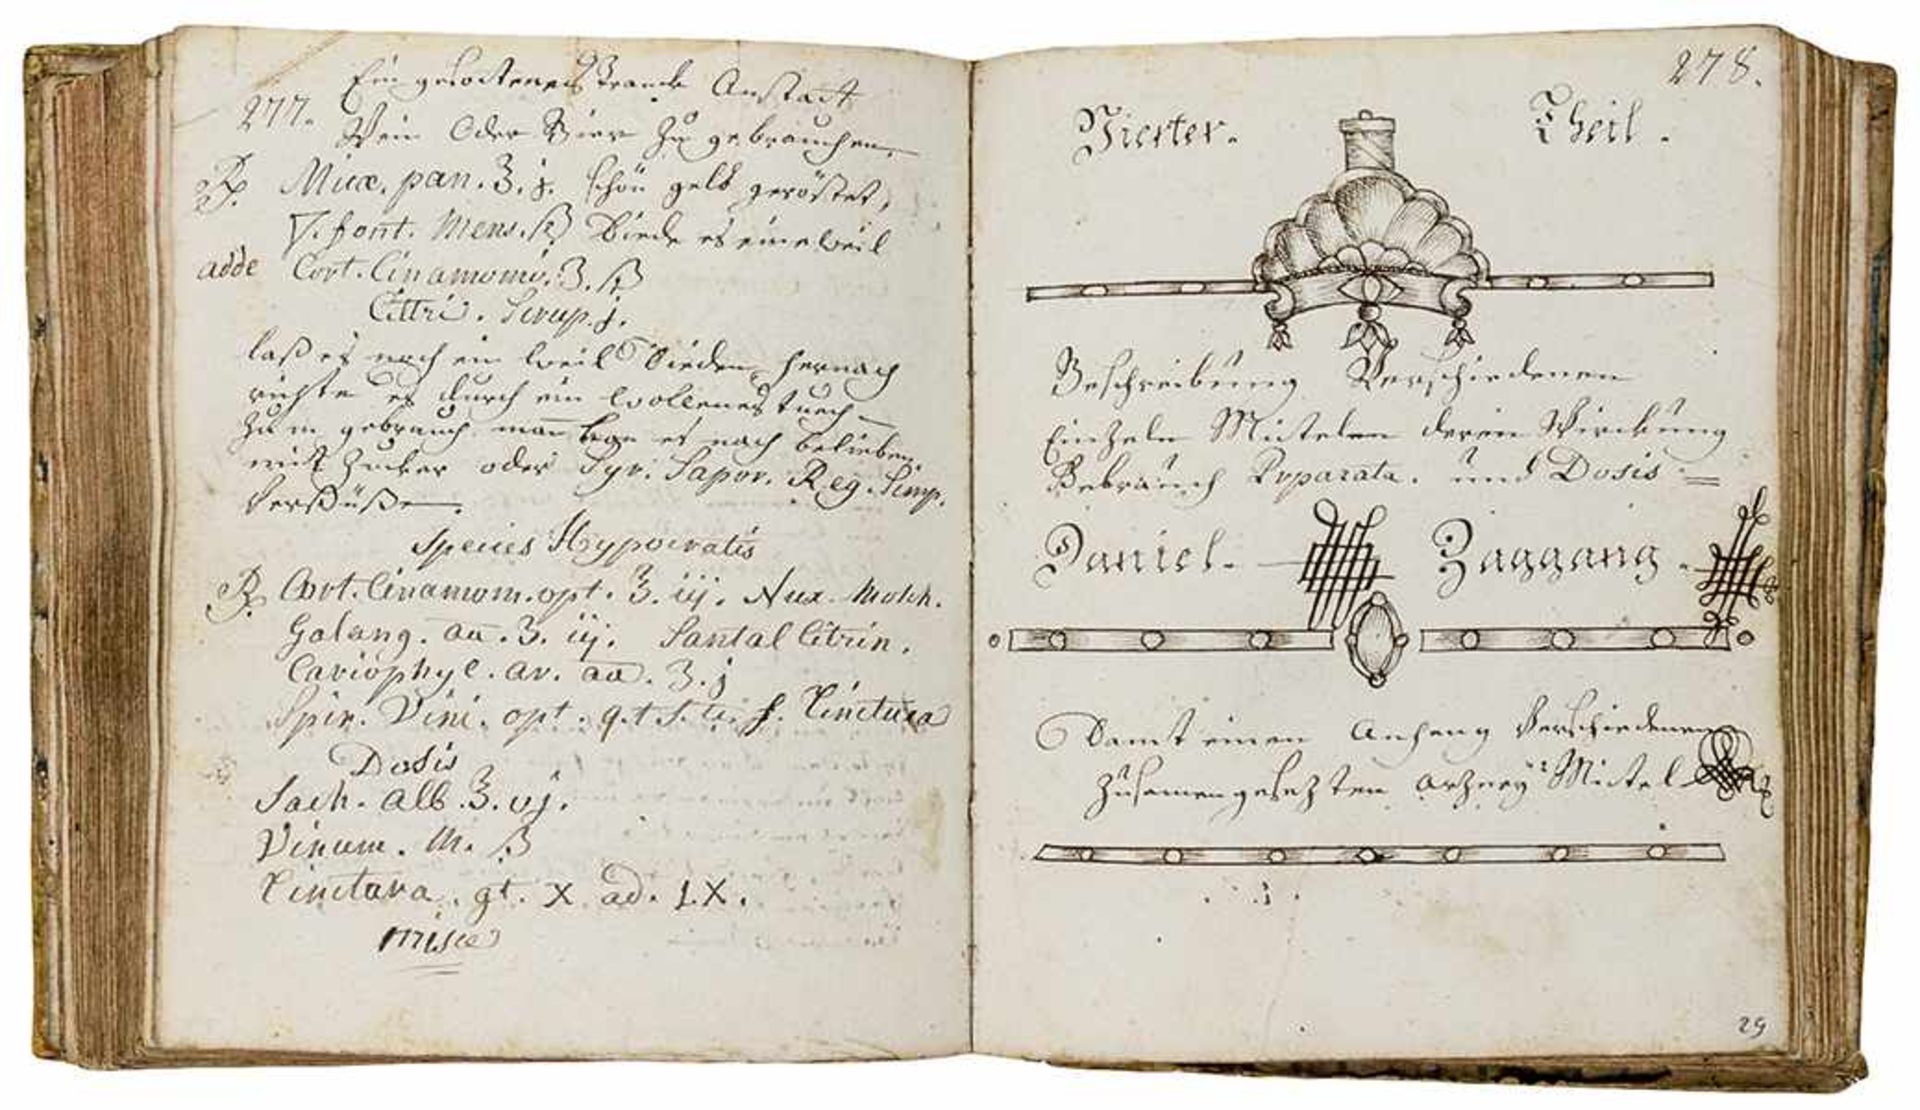 277.
Ein gesottener Tranck Anstatt
Wein Oder Bier Zu gebrauchen.
℞. Micæ. pan. ℥. j. schön gelb geröstet,
▽. font. Mens. ß Siede es eine weil
adde Cort. Cinamomi. ℥. ß
Cittri. Scrup. j.
laß es noch ein weil Sieden, hernach
richte es durch ein wollenes tuech
Zum gebrauch. man kan es nach belieben
mit Zucker oder Syr. Sapor. Reg. Simp.
Versüßen.
Species Hypocratis
℞. Cort. Cinamom. opt. ℥. iij. Nux. Mosch.
Galang. aa. ℥. iij. Santal Citrin.
Cariophyl. ar. aa. ℥. j
Spir. Vini. opt. q. t S. ti. f. Tinctura
Dosis
Sach. alb. ℥. vj.
Vinum. M. ß
Tinctura. gt. X ad. LX.
misce
278.
Vierter. Theil.
Beschreibung Verschiedenen
Einzeln Mitelen deren Wirckung
Gebrauch Prparata. und Dosis
Daniel. Zaggang.
Samt einen Anhang Verschiedenen
Zusamengesezten arzney Mittel
. j .
29